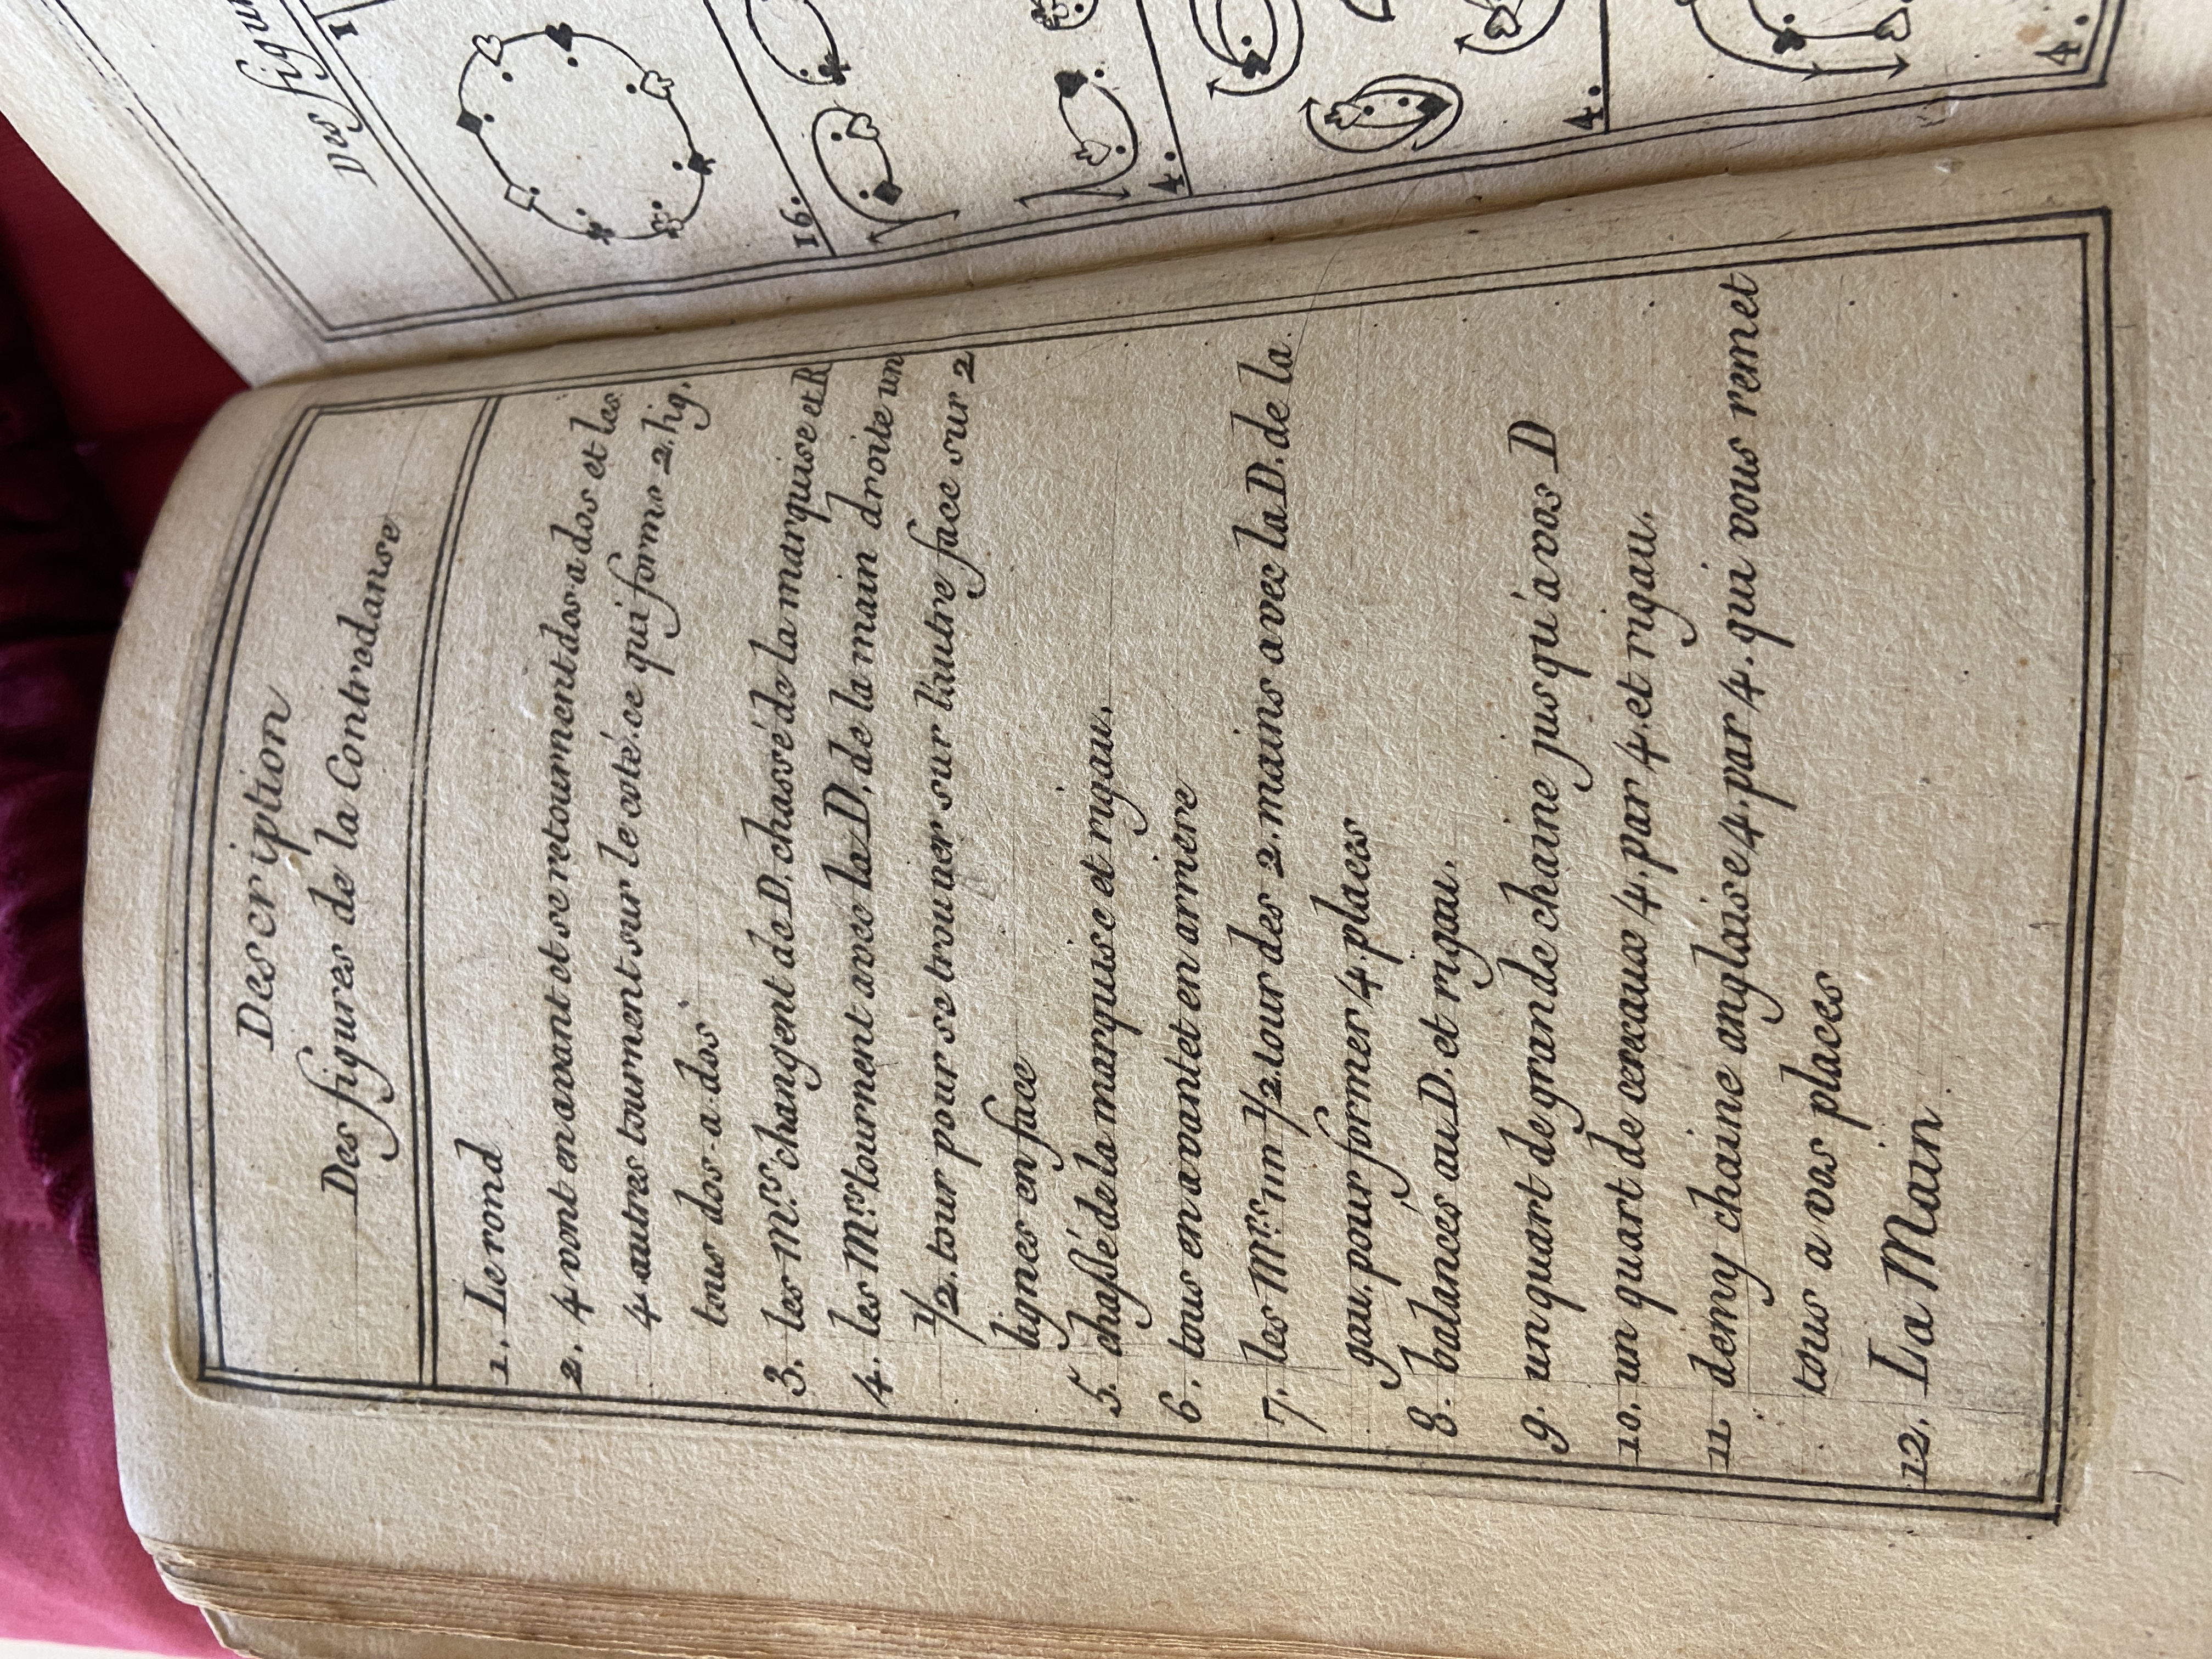 Description
Des figures de la Contredanse
1. Le rond
2. 4 vont en avant et se retournent dos-a dos et les
4 autres tournent sur le coté. ce qui forme 2. lig.
tous dos-a-dos
3. les M.rs changent de D. chassé de la marquise et R
4. les M.rs tournent avec la D. de la main droite un
1/2. tour pour se trouver sur l'autre face sur 2
lignes en face
5. chassé de la marquise et rigau.
6. tous en avant et en arriere
7. les M.rs un 1/2. tour des 2. mains avec la D. de la
gau. pour former 4. places
8. balancés au D. et rigau.
9. un quart de grande chaine jusqu'a vos D
10. un quart de cereaux 4. par 4. et rigau.
11 demy chaine anglaise 4. par 4. qui vous remet
tous a vos places
12. La Main
Des figur
1
16.
4.
4.
4.